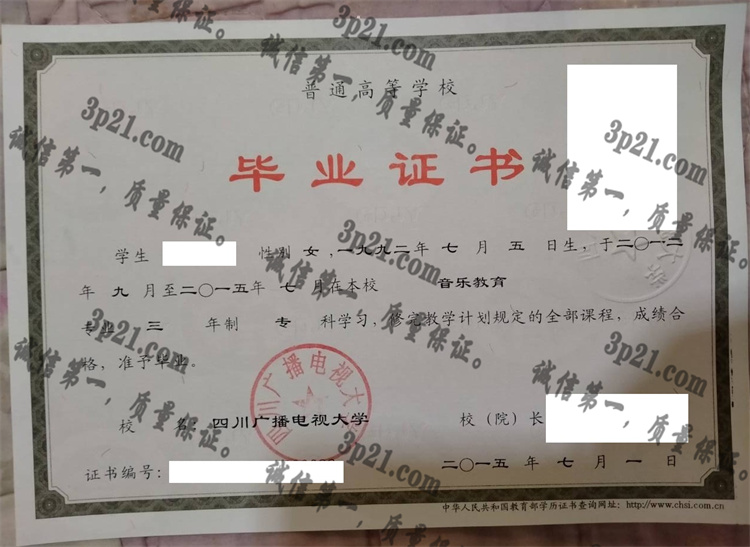 普通高等学校
毕业证书
学生 性别 女，一九九二年 七 月 五 日生，于二〇一二
年 九 月至二〇一五年 七 月在本校 音乐教育
专业 三 年制 专 科学习，修完教学计划规定的全部课程，成绩合
格，准予毕业
校 名：四川广播电视大学 校（院）长
证书编号： 二〇一五 年 七 月 一 日
中华人民共和国教育部学历证书查询网址：http://www.chsi.com.cn
四川广播电视大学
3p21.com
诚信第一，质量保证。
3p21.com
诚信第一，质量保证。
3p21.com
诚信第一，质量保证。
3p21.com
诚信第一，质量保证。
3p21.com
诚信第一，质量保证。
3p21.com
诚信第一，质量保证。
3p21.com
诚信第一，质量保证。
3p21.com
诚信第一，质量保证。
3p21.com
诚信第一，质量保证。